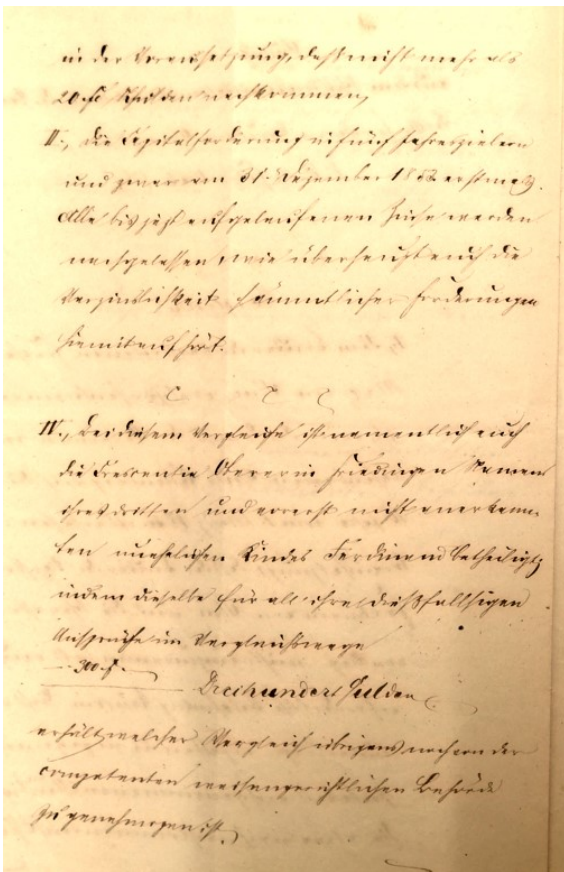 in der Voraussetzung, daß nicht mehr als
20 fl Schulden nachkommen,
II., die Capitalforderung in fünf Jahreszielern
und zwar am 31. Dezember 1858 erstmals.
Alle bis jezt aufgelaufenen Zinse werden
nachgelassen, wie überhaupt auch die
Verzinslichkeit sämmtlicher Forderungen
hiemit aufhört.
IV., Bei diesem Vergleiche ist namentlich auch
die Crescentia Oberer in Fridingen Namens
ihres dritten und vorerst nicht anerkann-
ten unehelichen Kindes Ferdinand betheiligt,
indem dieselbe für all ihre dießfallsigen
Ansprüche im Vergleichswege
300 f.
Dreihundert Gulden
erhält, welcher Vergleich übrigens noch von der
competenten waisengerichtlichen Behörde
zu genehmigen ist.